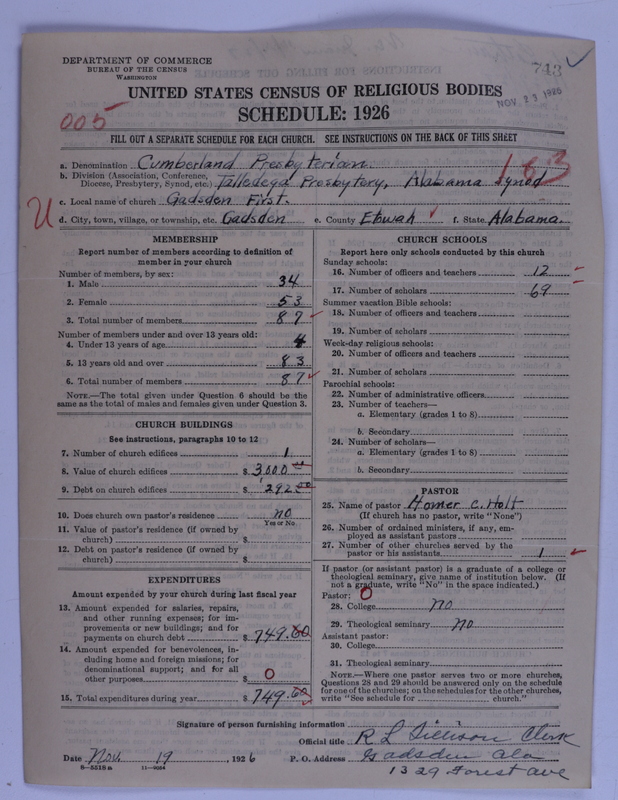 743
DEPARTMENT OF COMMERCE
BUREAU OF THE CENSUS
WASHINGTON
NOV 23 1926
UNITED STATES CENSUS OF RELIGIOUS BODIES
SCHEDULE: 1926
005
FILL OUT A SEPARATE SCHEDULE FOR EACH CHURCH. SEE INSTRUCTIONS ON THE BACK OF THIS SHEET
a. Denomination Cumberland Presbyterian.
b. Division (Association, Conference, Diocese, Presbytery, Synod, etc.) Talledega Presbytery, Alabama Synod
183
c. Local name of church Gadsden First.
d. City, town, village, or township, etc. Gadsden e. County Etowah f. State Alabama.
MEMBERSHIP
Report number of members according to definition of member in your church
Number of members, by sex:
1. Male 34
2. Female 53
3. Total number of members 87
Number of members under and over 13 years old:
4. Under 13 years of age 4
5. 13 years old and over 83
6. Total number of members 87
NOTE.—The total given under Question 6 should be
same as the total of males and females given under Question 3.
CHURCH BUILDINGS
See instructions, paragraphs 10 to 12
7. Number of church edifices 1
8. Value of church edifices $ 3,000
9. Debt on church edifices $ 292.00
10. Does church own pastor's residence no
Yes or No
11. Value of pastor's residence (if owned by
church) $
12. Debt on pastor's residence (if owned by
church) $
EXPENDITURES
Amount expended by your church during last fiscal year
13. Amount expended for salaries, repairs,
and other running expenses; for im-
provements or new buildings; and for
payments on church debt $ 749.60
14. Amount expended for benevolences, in-
cluding home and foreign missions; for
denominational support; and for all
other purposes $ 0
15. Total expenditures during year $ 749.60
CHURCH SCHOOLS
Report here only schools conducted by this church
Sunday schools:
16. Number of officers and teachers 12
17. Number of scholars 69
Summer vacation Bible schools:
18. Number of officers and teachers
19. Number of scholars
Week-day religious schools:
20. Number of officers and teachers
21. Number of scholars
Parochial schools:
22. Number of administrative officers
23. Number of teachers—
a. Elementary (grades 1 to 8)
b. Secondary
24. Number of scholars—
a. Elementary (grades 1 to 8)
b. Secondary
PASTOR
25. Name of pastor Homer C. Holt
(If church has no pastor, write "None")
26. Number of ordained ministers, if any, em-
ployed as assistant pastors
27. Number of other churches served by the
pastor or his assistants 1
If pastor (or assistant pastor) is a graduate of a college or
theological seminary, give name of institution below. (If
not a graduate, write "No" in the space indicated.)
Pastor: 0
28. College no
29. Theological seminary no
Assistant pastor:
30. College
31. Theological seminary
NOTE.—Where one pastor serves two or more churches,
Questions 28 and 29 should be answered only on the schedule
for one of the churches; on the schedules for the other churches,
write "See schedule for church."
Signature of person furnishing information
Official title R L Clerk
Date Nov. 19, 1926 P. O. Address Gadsden Ala
8—5518a 11—9064
1329 Forest ave